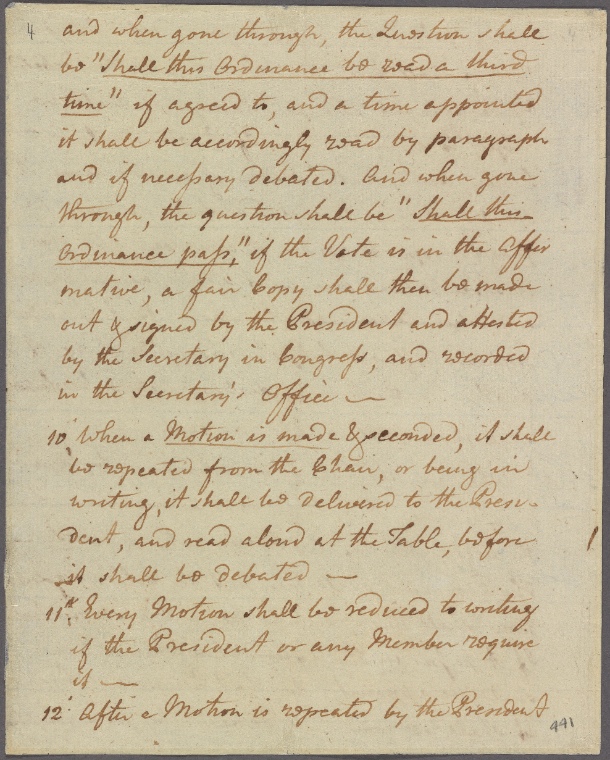 4
and when gone through, the Question shall
be "Shall this Ordinance be read a third
time" if agreed to, and a time appointed
it shall be accordingly read by paragraph
and if necessary debated. And when gone
through, the question shall be "Shall this
Ordinance pass," if the Vote is in the affir
mative, a fair Copy shall then be made
out & signed by the President and attested
by the Secretary in Congress, and recorded
in the Secretary's Office —
10 When a Motion is made & seconded, it shall
be repeated from the Chair, or being in
writing, it shall be delivered to the Presi-
dent, and read aloud at the Table, before
it shall be debated —
11th. Every Motion shall be reduced to writing
if the President or any Member require
it —
12 After a Motion is repeated by the President
441